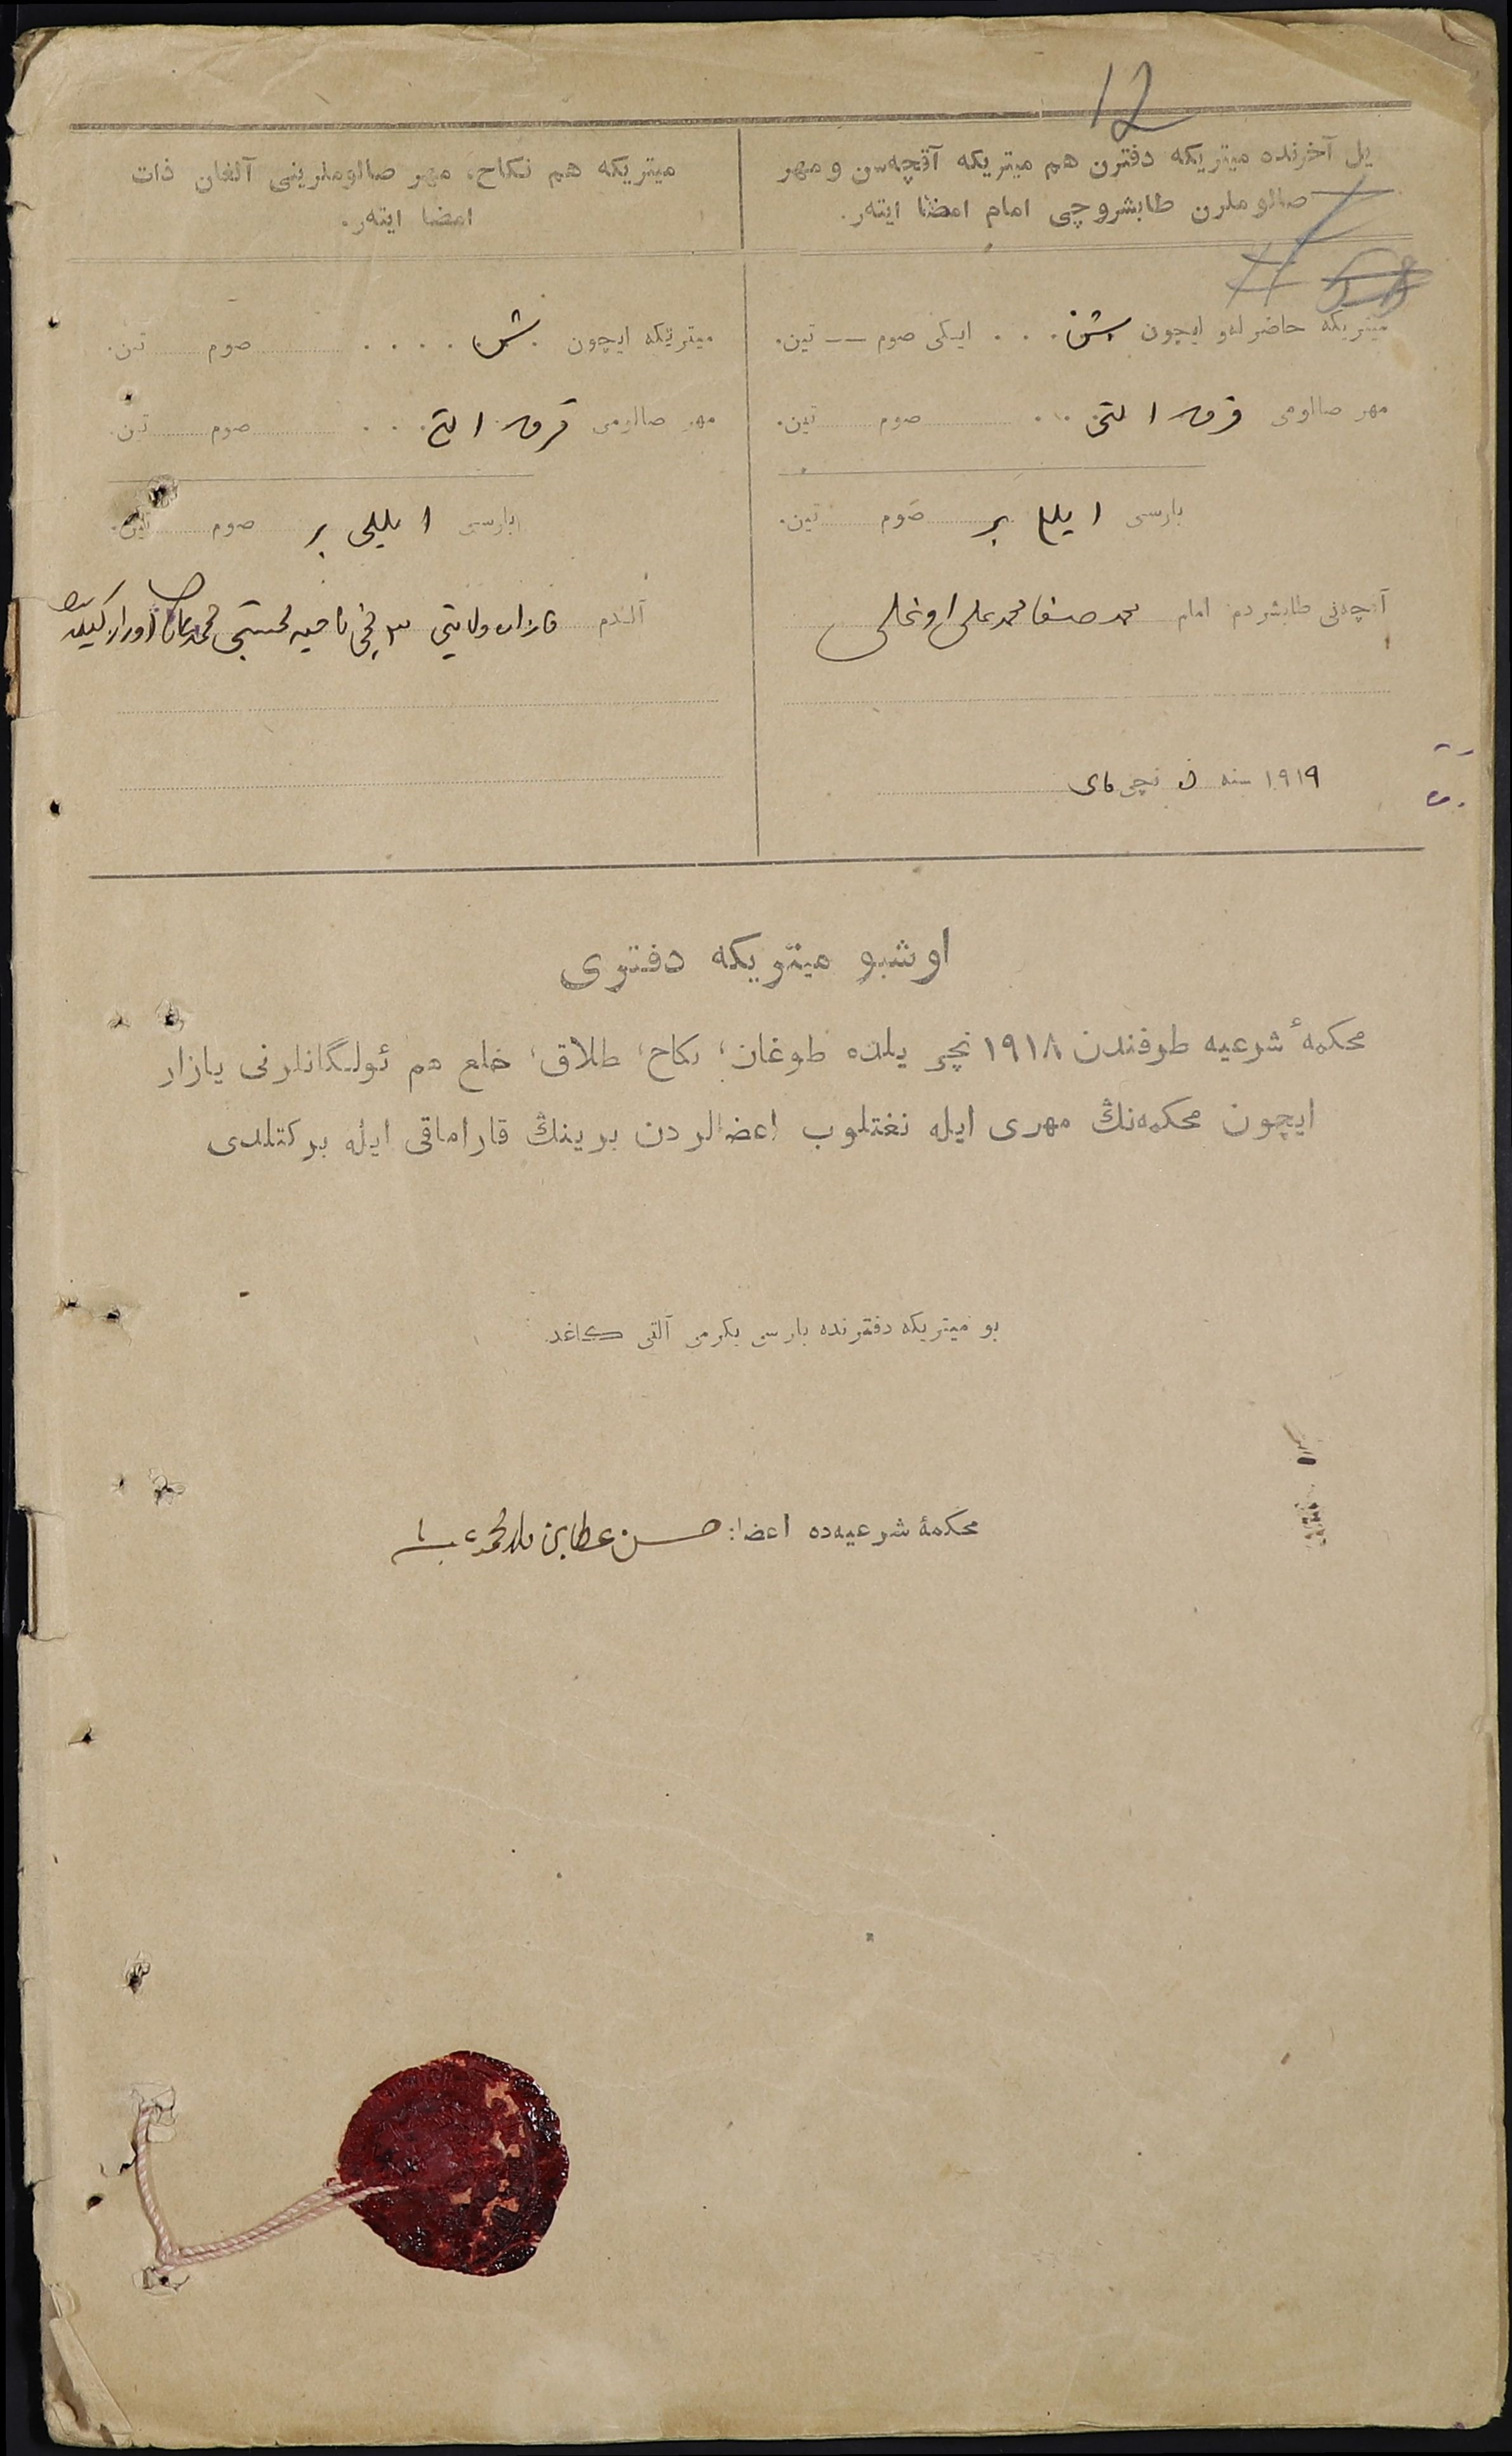 12
یل آخرنده میتریکه دفترن هم میتریکه آقچه‌سن و مهر
صالوملرن طابشروچی امام امضا ایته‌ر.
میتریکه حاضرله‌و ایچون بش . . . ایکی صوم —— تین.
مهر صالومی قرق التی . . صوم تین.
بارسی ایللی بر صوم تین.
آقچه‌نی طابشردم امام محمد صفا محمد علی اوغلی
۱۹۱۹ سنه ۵ نچی مای
میتریکه هم نکاح، مهر صالوملرینی آلغان ذات
امضا ایته‌ر.
میتریکه ایچون بش . . . . صوم تین.
مهر صالومی قرق التی . . . صوم تین.
بارسی ایللی بر صوم تین.
آلدم قازان ولایتی ۳ نچی ناحیه محتسبی
اوشبو میتریکه دفتری
محکمهٔ شرعیه طرفندن ۱۹۱۸ نچی یلده طوغان، نکاح، طلاق، خلع هم ئولگانلرنی یازار
ایچون محکمه‌نڭ مهری ایله نغتلوب اعضالردن برینڭ قاراماقی ایله برکتلدی
بو میتریکه دفترنده بارسی یکرمی آلتی کاغد.
محکمهٔ شرعیه‌ده اعضا: حسن عطا بن ملا محمد